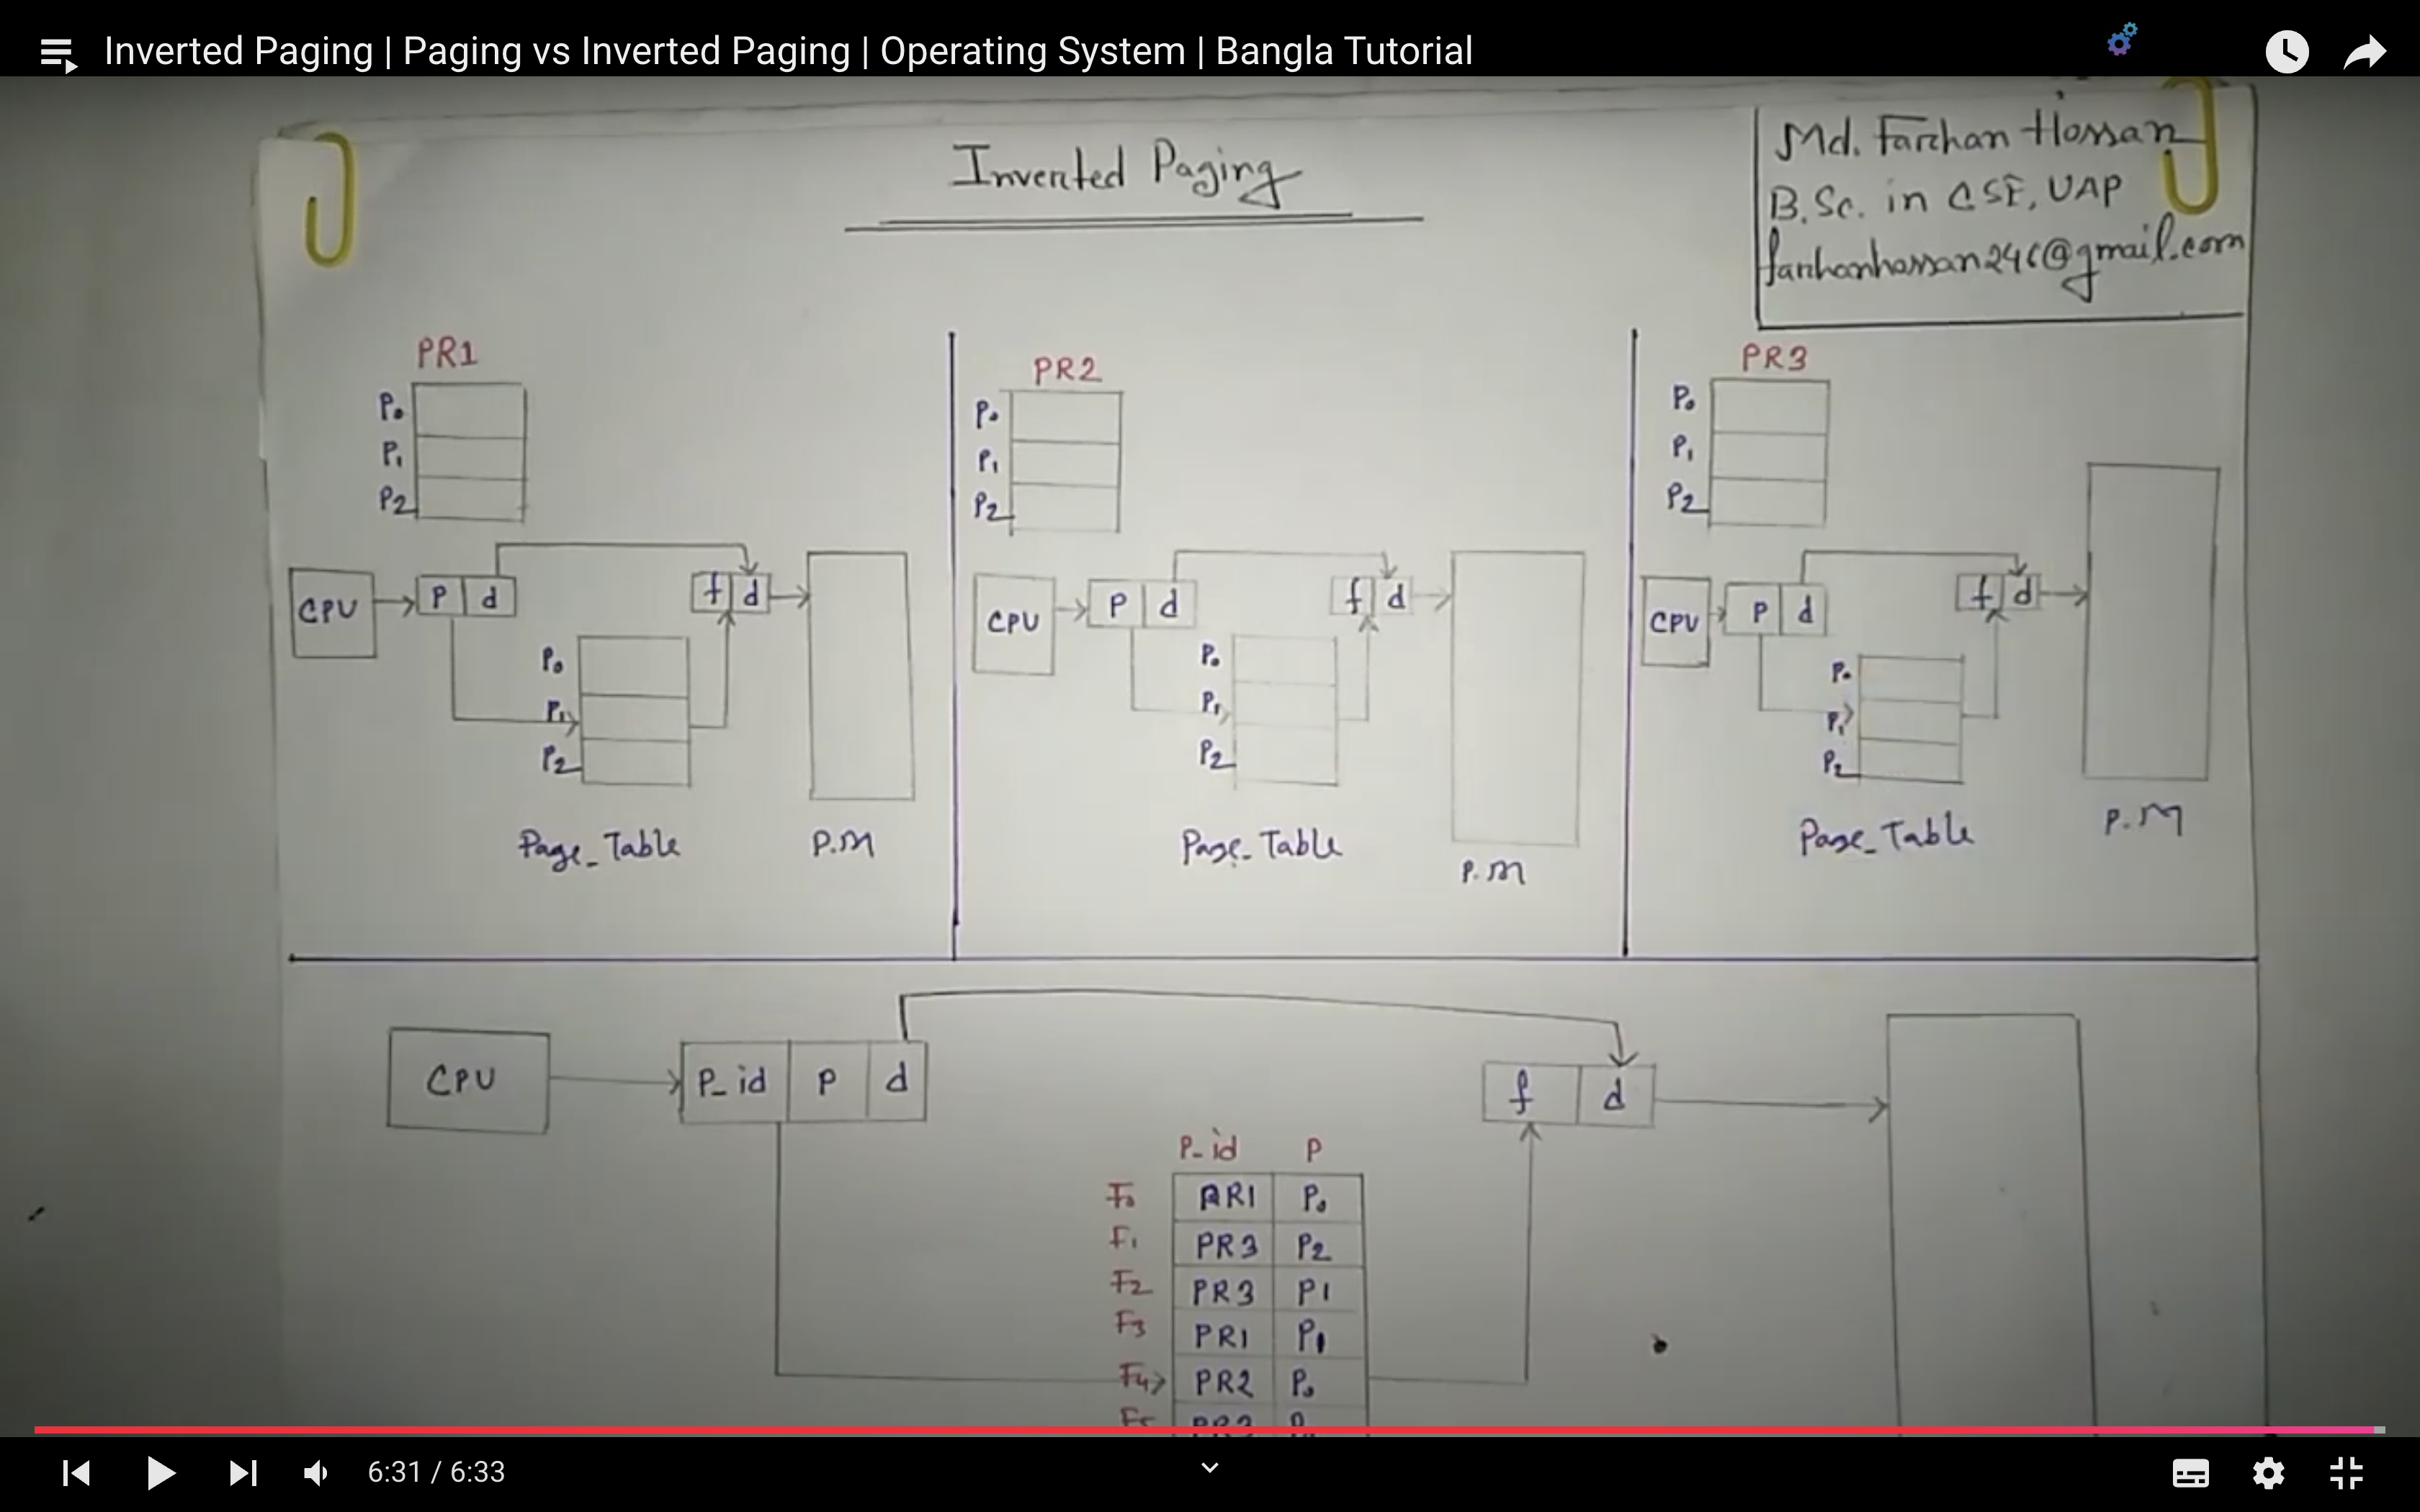 Inverted Paging | Paging vs Inverted Paging | Operating System | Bangla Tutorial
Inverted Paging
Md. Farhan Hossan
B.Sc. in CSE, UAP
farhanhossan246@gmail.com
PR1
P0
P1
P2
CPU
P d
f d
P0
P1
P2
Page_Table
P.M
PR2
P0
P1
P2
CPU
P d
f d
P0
P1
P2
Page_Table
P.M
PR3
P0
P1
P2
CPU
P d
f d
P0
P1
P2
Page_Table
P.M
CPU
P_id P d
f d
P_id P
F0 PR1 P0
F1 PR3 P2
F2 PR3 P1
F3 PR1 P1
F4 PR2 P0
6:31 / 6:33